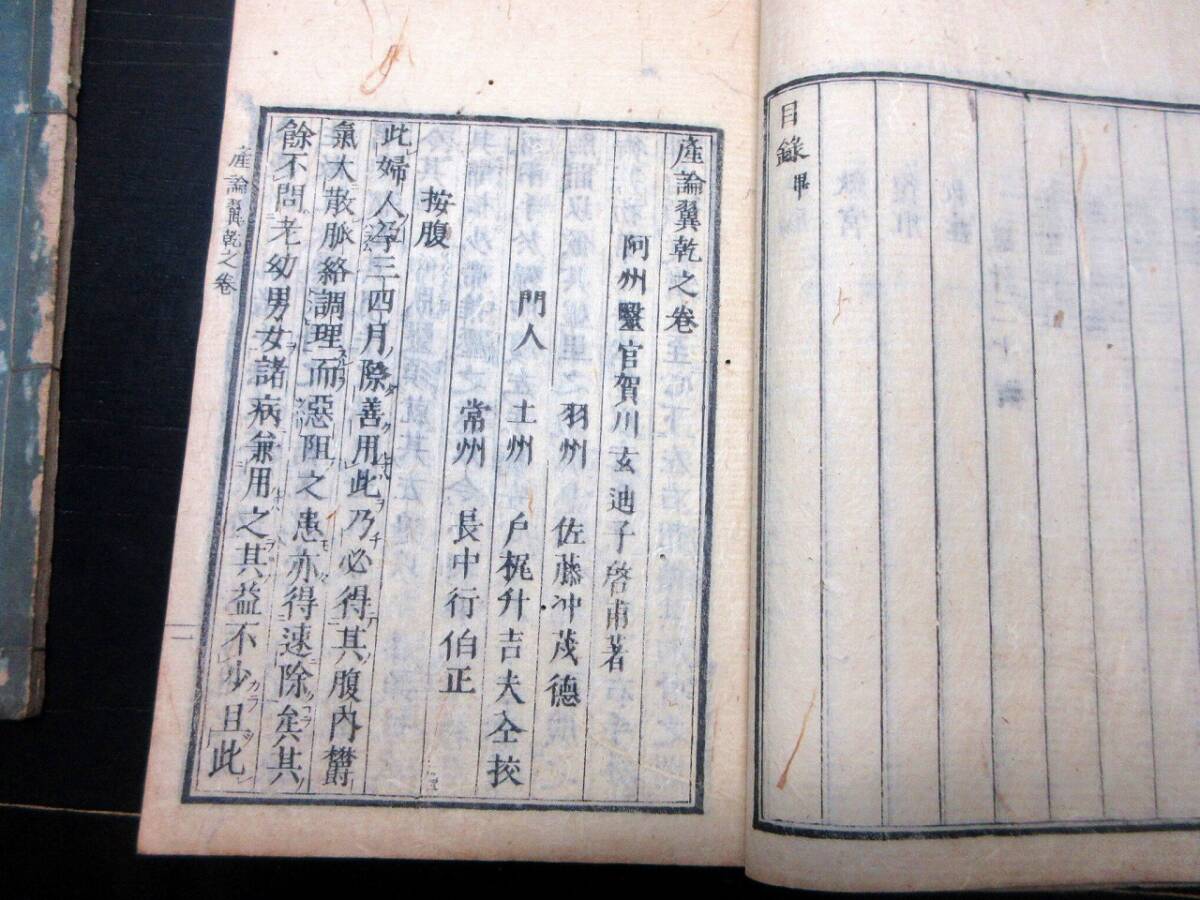 目錄畢
産論翼乾之卷
阿州醫官賀川玄迪子啓甫著
羽州 佐藤冲茂德
門人 土州 戶梶升吉夫仝挍
常州 長中行伯正
按腹
此婦人孕三四月際善用此乃必得其腹內欝
氣大散脈絡調理而惡阻之患亦得速除矣其
餘不問老幼男女諸病兼用之其益不少且此
産論翼乾之卷
一